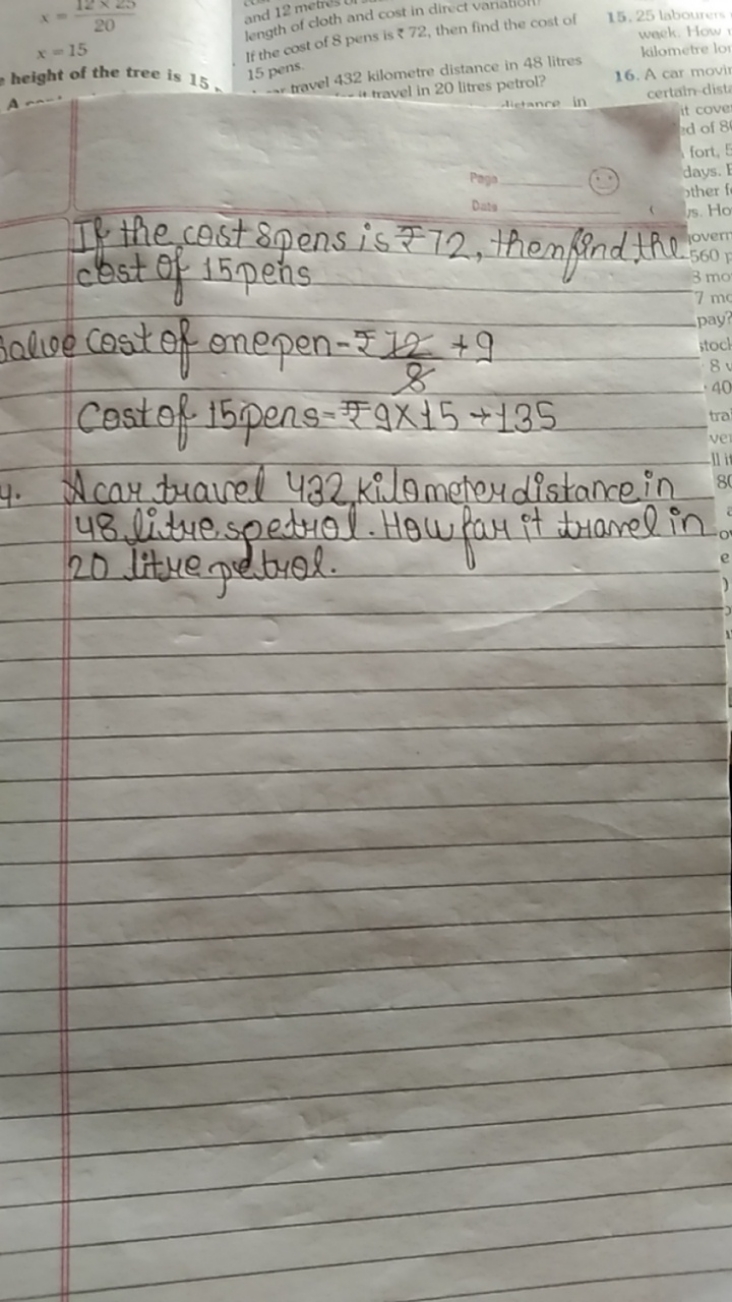 x = 12 × 25
20
x = 15
height of the tree is 15
and 12 metres
length of cloth and cost in direct variation.
If the cost of 8 pens is ₹ 72, then find the cost of
15 pens.
travel 432 kilometre distance in 48 litres
it travel in 20 litres petrol?
distance in
15. 25 labourers
week. How
kilometre
16. A car
certain
it
ed of
fort,
days.
other
560
3
7
pay?
8
40
Page
Date
If the cost 8 pens is ₹72, then find the
cost of 15 pens
Salve cost of one pen - ₹ 72 → 9
8
Cost of 15 pens = ₹ 9×15 → 135
4. A car travel 432 kilometer distance in
48 litre spetrol. How far it travel in
20 litre petrol.